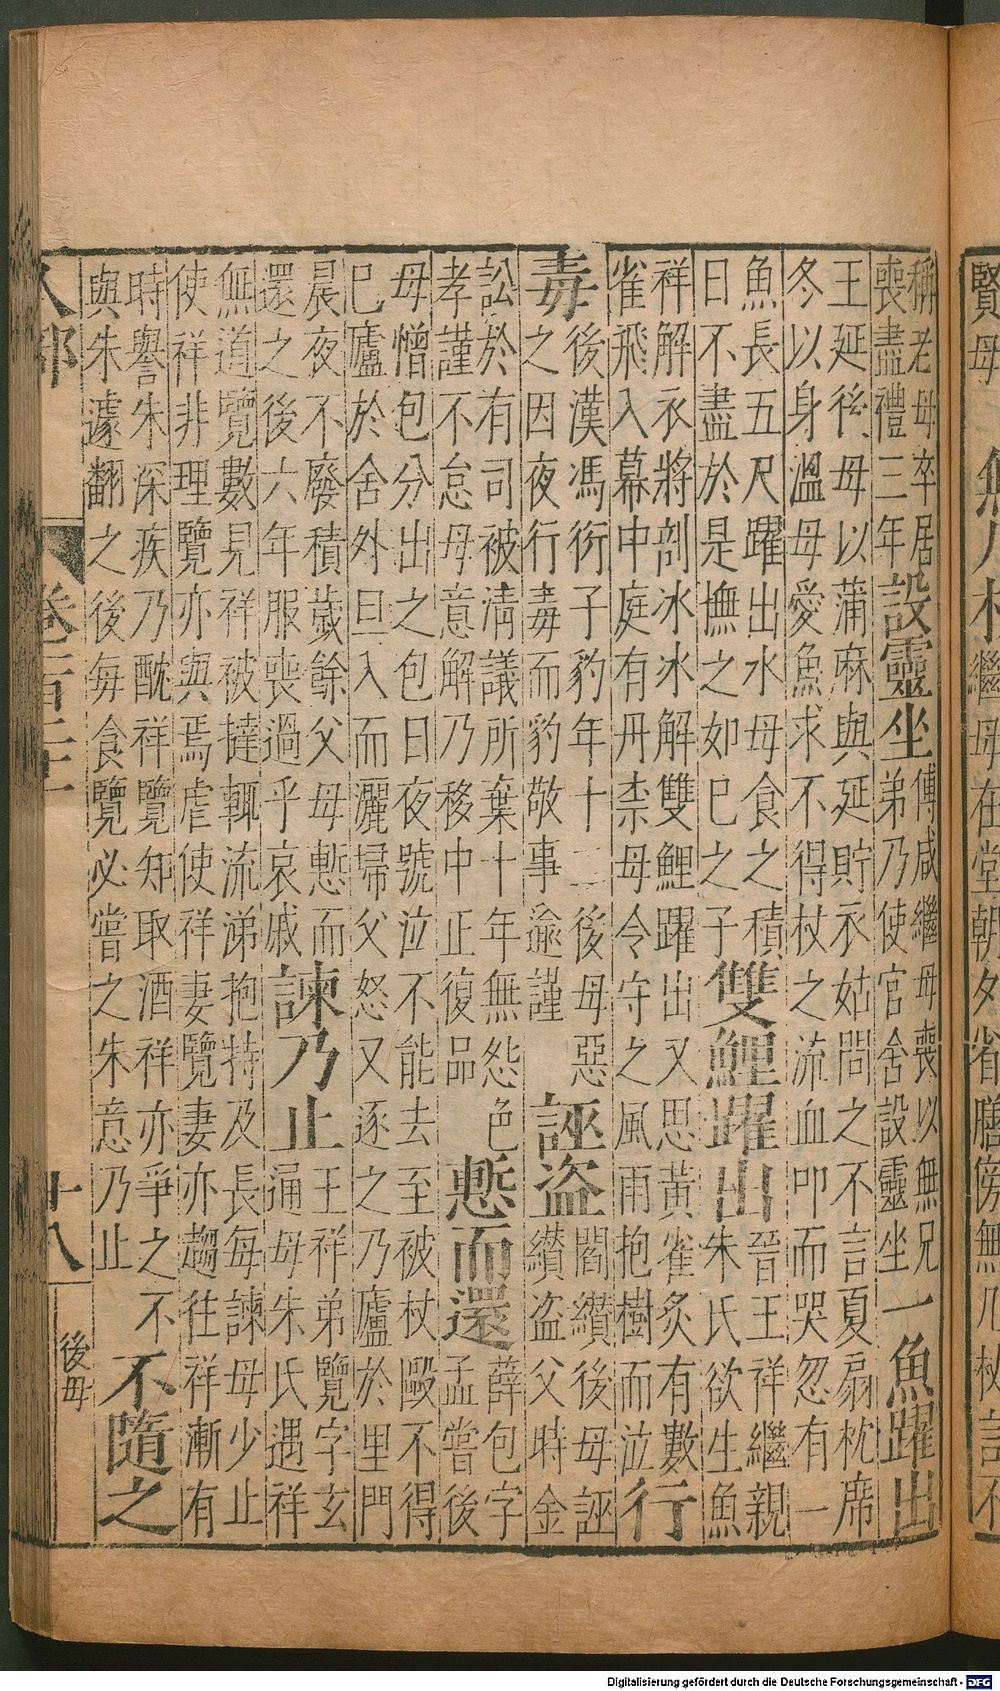 稱老母卒居
喪盡禮三年
設靈坐
傅咸繼母喪以無兄
弟乃使官舍設靈坐
一魚躍出
王延後母以蒲麻與延貯衣姑問之不言夏扇枕席
冬以身溫母愛魚求不得杖之流血叩而哭忽有一
魚長五尺躍出水母食之積
日不盡於是撫之如巳之子
雙鯉躍出
晉王祥繼親
朱氏欲生魚
祥解衣將剖冰冰解雙鯉躍出又思黃雀炙有數
雀飛入幕中庭有丹柰母令守之風雨抱樹而泣
行
毒
後漢馮衍子豹年十二後母惡
之因夜行毒而豹敬事逾謹
誣盜
閻纘後母誣
纘盜父時金
訟於有司被清議所棄十年無怨色
孝謹不怠母意解乃移中正復品
慙而還
薛包字
孟嘗後
母憎包分出之包日夜號泣不能去至被杖毆不得
巳廬於舍外旦入而灑埽父怒又逐之乃廬於里門
晨夜不廢積歲餘父母慙而
還之後六年服喪過乎哀戚
諫乃止
王祥弟覽字玄
通母朱氏遇祥
無道覽數見祥被撻輒流涕抱持及長每諫母少止
使祥非理覽亦與焉虐使祥妻覽妻亦趨往祥漸有
時譽朱深疾乃酖祥覽知取酒祥亦爭之不
與朱遽翻之後每食覽必嘗之朱意乃止
不隨之
人部
卷二百三十一
十八
後母
賢母
無几杖
繼母在堂朝夕省膳傍無几杖言不
Digitalisierung gefördert durch die Deutsche Forschungsgemeinschaft - DFG